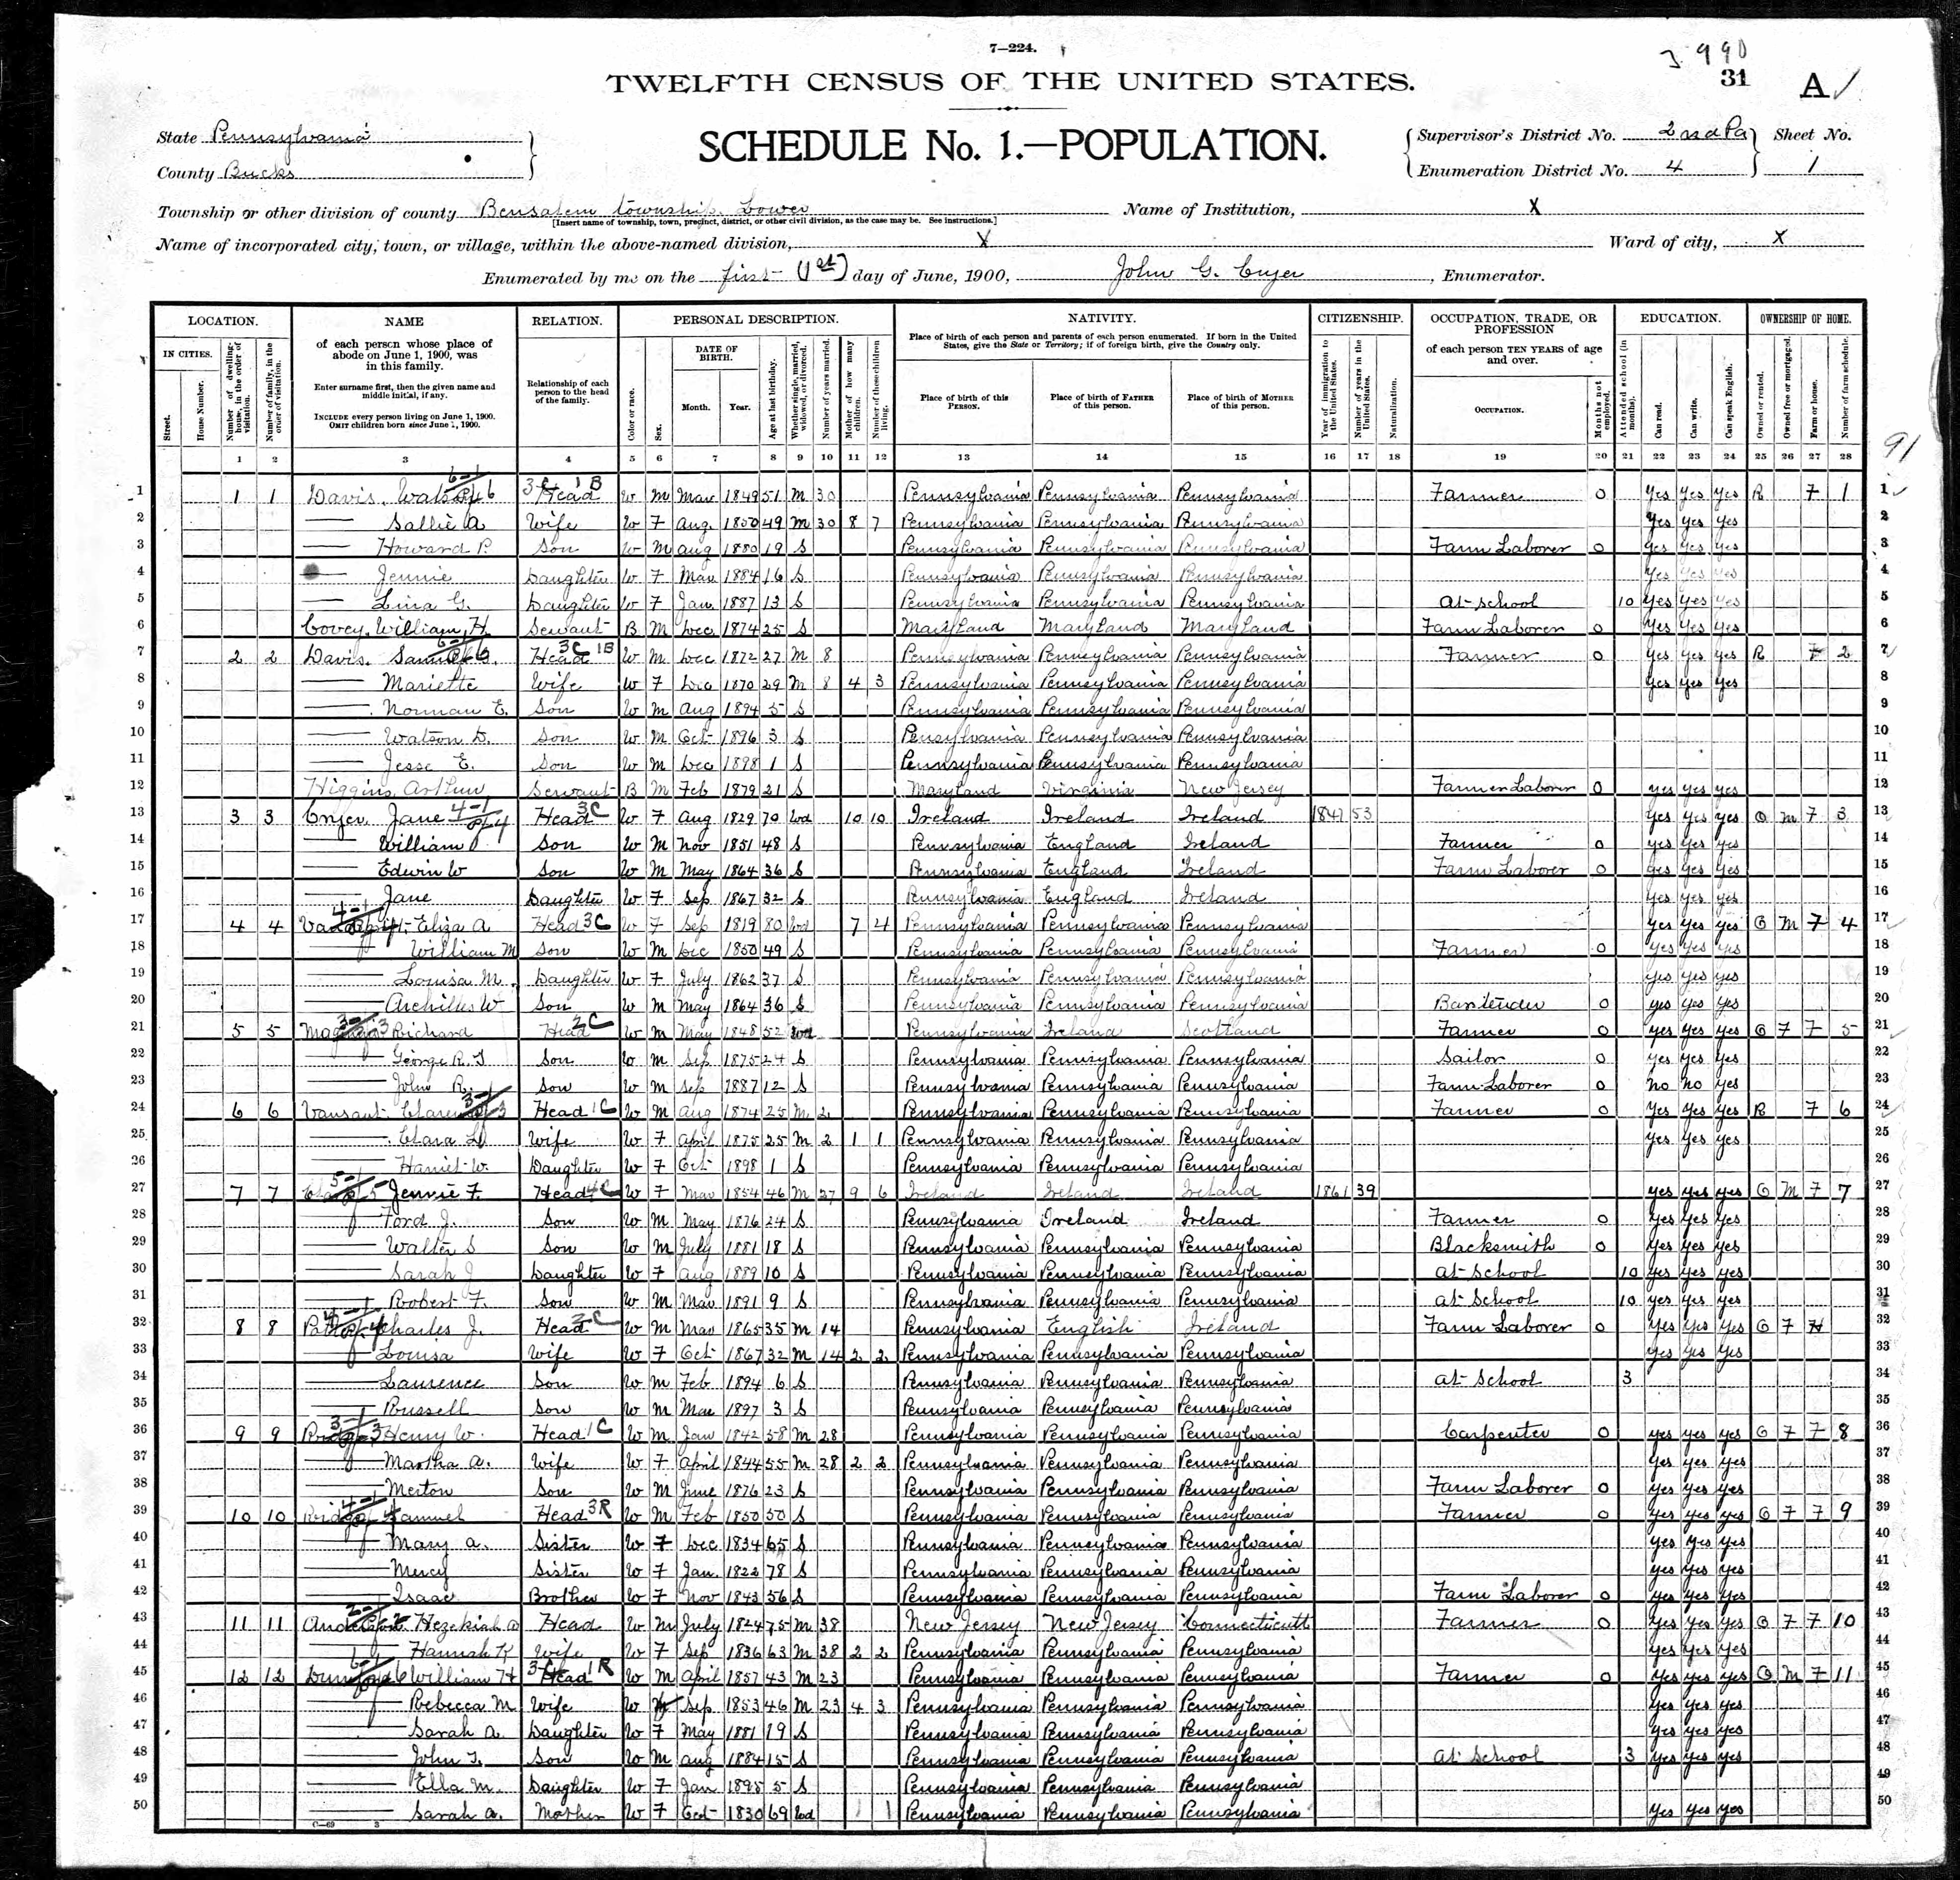 7—224.
3 990
TWELFTH CENSUS OF THE UNITED STATES.
31 A
State Pennsylvania
County Bucks
SCHEDULE No. 1.—POPULATION.
Supervisor's District No. 2nd Pa Sheet No.
Enumeration District No. 4 1
Township or other division of county Bensalem township Lower Name of Institution, X
[Insert name of township, town, precinct, district, or other civil division, as the case may be. See instructions.]
Name of incorporated city, town, or village, within the above-named division, X Ward of city, X
Enumerated by me on the first (1st) day of June, 1900, John G. Enjer, Enumerator.
LOCATION. NAME RELATION. PERSONAL DESCRIPTION. NATIVITY. CITIZENSHIP. OCCUPATION, TRADE, OR PROFESSION EDUCATION. OWNERSHIP OF HOME.
IN CITIES. Street. House Number. Number of dwelling-house, in the order of visitation. Number of family, in the order of visitation.
of each person whose place of abode on June 1, 1900, was in this family.
Enter surname first, then the given name and middle initial, if any.
INCLUDE every person living on June 1, 1900. OMIT children born since June 1, 1900.
Relationship of each person to the head of the family.
Color or race. Sex. DATE OF BIRTH. Month. Year. Age at last birthday. Whether single, married, widowed, or divorced. Number of years married. Mother of how many children. Number of these children living.
Place of birth of each person and parents of each person enumerated. If born in the United States, give the State or Territory; if of foreign birth, give the Country only.
Place of birth of this PERSON. Place of birth of FATHER of this person. Place of birth of MOTHER of this person.
Year of immigration to the United States. Number of years in the United States. Naturalization.
of each person TEN YEARS of age and over.
OCCUPATION. Months not employed.
Attended school (in months). Can read. Can write. Can speak English.
Owned or rented. Owned free or mortgaged. Farm or house. Number of farm schedule.
1 2 3 4 5 6 7 8 9 10 11 12 13 14 15 16 17 18 19 20 21 22 23 24 25 26 27 28
91
1 1 1 Davis, Watson Head W M Mar 1849 51 M 30 Pennsylvania Pennsylvania Pennsylvania Farmer 0 Yes Yes Yes R F 1 1
2 — Sallie A Wife W F Aug. 1850 49 M 30 8 7 Pennsylvania Pennsylvania Pennsylvania Yes Yes Yes 2
3 — Howard P. Son W M Aug 1880 19 S Pennsylvania Pennsylvania Pennsylvania Farm Laborer 0 Yes Yes Yes 3
4 — Jennie Daughter W F Mar 1884 16 S Pennsylvania Pennsylvania Pennsylvania Yes Yes Yes 4
5 — Lina G. Daughter W F Jan. 1887 13 S Pennsylvania Pennsylvania Pennsylvania At school 10 Yes Yes Yes 5
6 Covey, William H Servant B M Dec 1874 25 S Maryland Maryland Maryland Farm Laborer 0 Yes Yes Yes 6
7 2 2 Davis, Samuel Head 3C 1B W M Dec 1872 27 M 8 Pennsylvania Pennsylvania Pennsylvania Farmer 0 Yes Yes Yes R F 2 7
8 — Mariette Wife W F Dec 1870 29 M 8 4 3 Pennsylvania Pennsylvania Pennsylvania Yes Yes Yes 8
9 — Norman E. Son W M Aug 1894 5 S Pennsylvania Pennsylvania Pennsylvania 9
10 — Watson D. Son W M Oct 1896 3 S Pensylvania Pennsylvania Pennsylvania 10
11 — Jesse E. Son W M Dec 1898 1 S Pennsylvania Pennsylvania Pennsylvania 11
12 Higgins, Arthur Servant B M Feb 1879 21 S Maryland Virginia New Jersey Farmer Laborer 0 yes yes yes 12
13 3 3 Enjer, Jane Head 3C W F Aug 1829 70 Wd 10 10 Ireland Ireland Ireland 1847 53 Yes Yes yes O M F 3 13
14 — William Son W M Nov 1851 48 S Pennsylvania England Ireland Farmer 0 yes Yes yes 14
15 — Edwin W Son W M May 1864 36 S Pennsylvania England Ireland Farm Laborer 0 yes Yes yes 15
16 — Jane Daughter W F Sep 1867 32 S Pennsylvania England Ireland Yes Yes Yes 16
17 4 4 Eliza A. Head 3C W F Sep 1819 80 Wd 7 4 Pennsylvania Pennsylvania Pennsylvania yes Yes Yes O M F 4 17
18 William M Son W M Dec 1850 49 S Pennsylvania Pennsylvania Pennsylvania Farmer 0 Yes Yes Yes 18
19 — Louisa M. Daughter W F July 1862 37 S Pennsylvania Pennsylvania Pennsylvania Yes Yes Yes 19
20 — Archilles W Son W M May 1864 36 S Pennsylvania Pennsylvania Pennsylvania Bartender 0 yes Yes Yes 20
21 5 5 Richard Head W M May 1848 52 Wd Pennsylvania Ireland Scotland Farmer 0 yes Yes Yes O F F 5 21
22 — George R. T Son W M Sep 1875 24 S Pennsylvania Pennsylvania Pennsylvania Sailor 0 Yes Yes Yes 22
23 — John R. Son W M Sep 1887 12 S Pennsylvania Pennsylvania Pennsylvania Farm Laborer 0 no no yes 23
24 6 6 Vansant, Head 1C W M Aug 1874 25 M 2 Pennsylvania Pennsylvania Pennsylvania Farmer 0 Yes Yes Yes R F 6 24
25 — Clara L. Wife W F April 1875 25 M 2 1 1 Pennsylvania Pennsylvania Pennsylvania Yes Yes Yes 25
26 — Harriet W. Daughter W F Oct 1898 1 S Pennsylvania Pennsylvania Pennsylvania 26
27 7 7 Jennie F. Head W F Mar 1854 46 M 27 9 6 Ireland Ireland Ireland 1861 39 yes yes yes O M F 7 27
28 — Ford J. Son W M May 1876 24 S Pennsylvania Ireland Ireland Farmer 0 Yes Yes Yes 28
29 — Walter S Son W M July 1881 18 S Pennsylvania Pennsylvania Pennsylvania Blacksmith 0 Yes Yes Yes 29
30 — Sarah J Daughter W F Aug 1889 10 S Pennsylvania Pennsylvania Pennsylvania At School 10 Yes Yes Yes 30
31 — Robert F. Son W M Mar 1891 9 S Pennsylvania Pennsylvania Pennsylvania At School 10 Yes Yes Yes 31
32 8 8 Charles J. Head W M Mar 1865 35 M 14 Pennsylvania English Ireland Farm Laborer 0 Yes Yes Yes O F H 32
33 — Louisa Wife W F Oct 1867 32 M 14 2 2 Pennsylvania Pennsylvania Pennsylvania Yes Yes Yes 33
34 — Laurence Son W M Feb 1894 6 S Pennsylvania Pennsylvania Pennsylvania At School 3 34
35 — Russell Son W M Mar 1897 3 S Pennsylvania Pennsylvania Pennsylvania 35
36 9 9 Henry W. Head 1C W M Jan 1842 58 M 28 Pennsylvania Pennsylvania Pennsylvania Carpenter 0 yes yes yes O F F 8 36
37 — Martha A. Wife W F April 1844 55 M 28 2 2 Pennsylvania Pennsylvania Pennsylvania Yes Yes Yes 37
38 — Merton Son W M June 1876 23 S Pennsylvania Pennsylvania Pennsylvania Farm Laborer 0 yes Yes Yes 38
39 10 10 Samuel Head 3R W M Feb 1850 50 S Pennsylvania Pennsylvania Pennsylvania Farmer 0 Yes Yes Yes O F F 9 39
40 — Mary A. Sister W F Dec 1834 65 S Pennsylvania Pennsylvania Pennsylvania yes yes yes 40
41 — Mercy Sister W F Jan. 1822 78 S Pennsylvania Pennsylvania Pennsylvania yes Yes Yes 41
42 — Isaac Brother W F Nov 1843 56 S Pennsylvania Pennsylvania Pennsylvania Farm Laborer 0 Yes Yes Yes 42
43 11 11 Hezekiah A Head W M July 1824 75 M 38 New Jersey New Jersey Connecticutt Farmer 0 Yes Yes Yes O F F 10 43
44 — Hannah K Wife W F Sep 1836 63 M 38 2 2 Pennsylvania Pennsylvania Pennsylvania yes Yes Yes 44
45 12 12 William H Head W M April 1857 43 M 23 Pennsylvania Pennsylvania Pennsylvania Farmer 0 Yes Yes yes O M F 11 45
46 — Rebecca M Wife W Sep 1853 46 M 23 4 3 Pennsylvania Pennsylvania Pennsylvania Yes Yes Yes 46
47 — Sarah A. Daughter W F May 1881 19 S Pennsylvania Pennsylvania Pennsylvania Yes Yes Yes 47
48 — John T. Son W M Aug 1884 15 S Pennsylvania Pennsylvania Pennsylvania At School 3 Yes Yes Yes 48
49 — Ella M. Daughter W F Jan 1895 5 S Pennsylvania Pennsylvania Pennsylvania 49
50 — Sarah A. Mother W F Oct 1830 69 Wd 1 1 Pennsylvania Pennsylvania Pennsylvania Yes Yes Yes 50